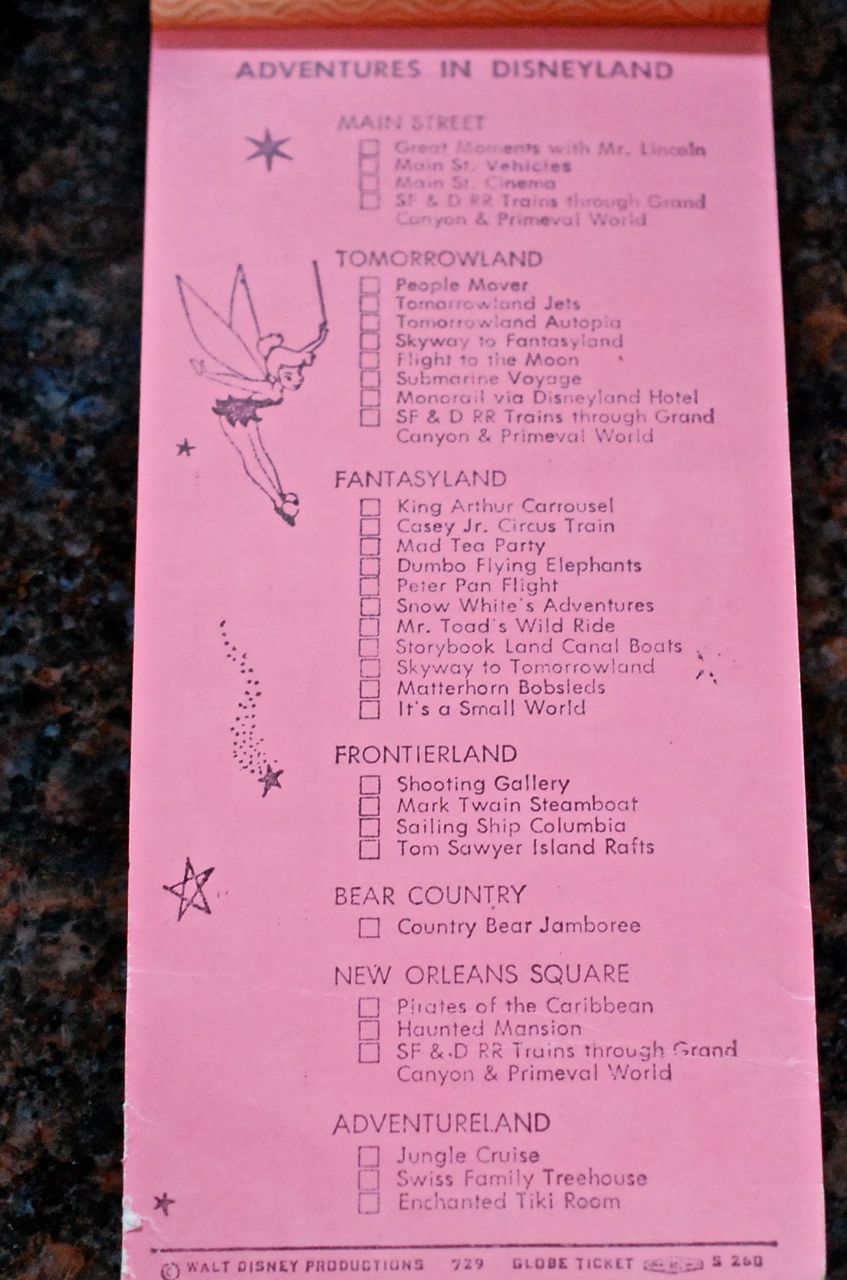 ADVENTURES IN DISNEYLAND
MAIN STREET
Great Moments with Mr. Lincoln
Main St. Vehicles
Main St. Cinema
SF & D RR Trains through Grand
Canyon & Primeval World
TOMORROWLAND
People Mover
Tomorrowland Jets
Tomorrowland Autopia
Skyway to Fantasyland
Flight to the Moon
Submarine Voyage
Monorail via Disneyland Hotel
SF & D RR Trains through Grand
Canyon & Primeval World
FANTASYLAND
King Arthur Carrousel
Casey Jr. Circus Train
Mad Tea Party
Dumbo Flying Elephants
Peter Pan Flight
Snow White's Adventures
Mr. Toad's Wild Ride
Storybook Land Canal Boats
Skyway to Tomorrowland
Matterhorn Bobsleds
It's a Small World
FRONTIERLAND
Shooting Gallery
Mark Twain Steamboat
Sailing Ship Columbia
Tom Sawyer Island Rafts
BEAR COUNTRY
Country Bear Jamboree
NEW ORLEANS SQUARE
Pirates of the Caribbean
Haunted Mansion
SF & D RR Trains through Grand
Canyon & Primeval World
ADVENTURELAND
Jungle Cruise
Swiss Family Treehouse
Enchanted Tiki Room
© WALT DISNEY PRODUCTIONS 729 GLOBE TICKET S 260